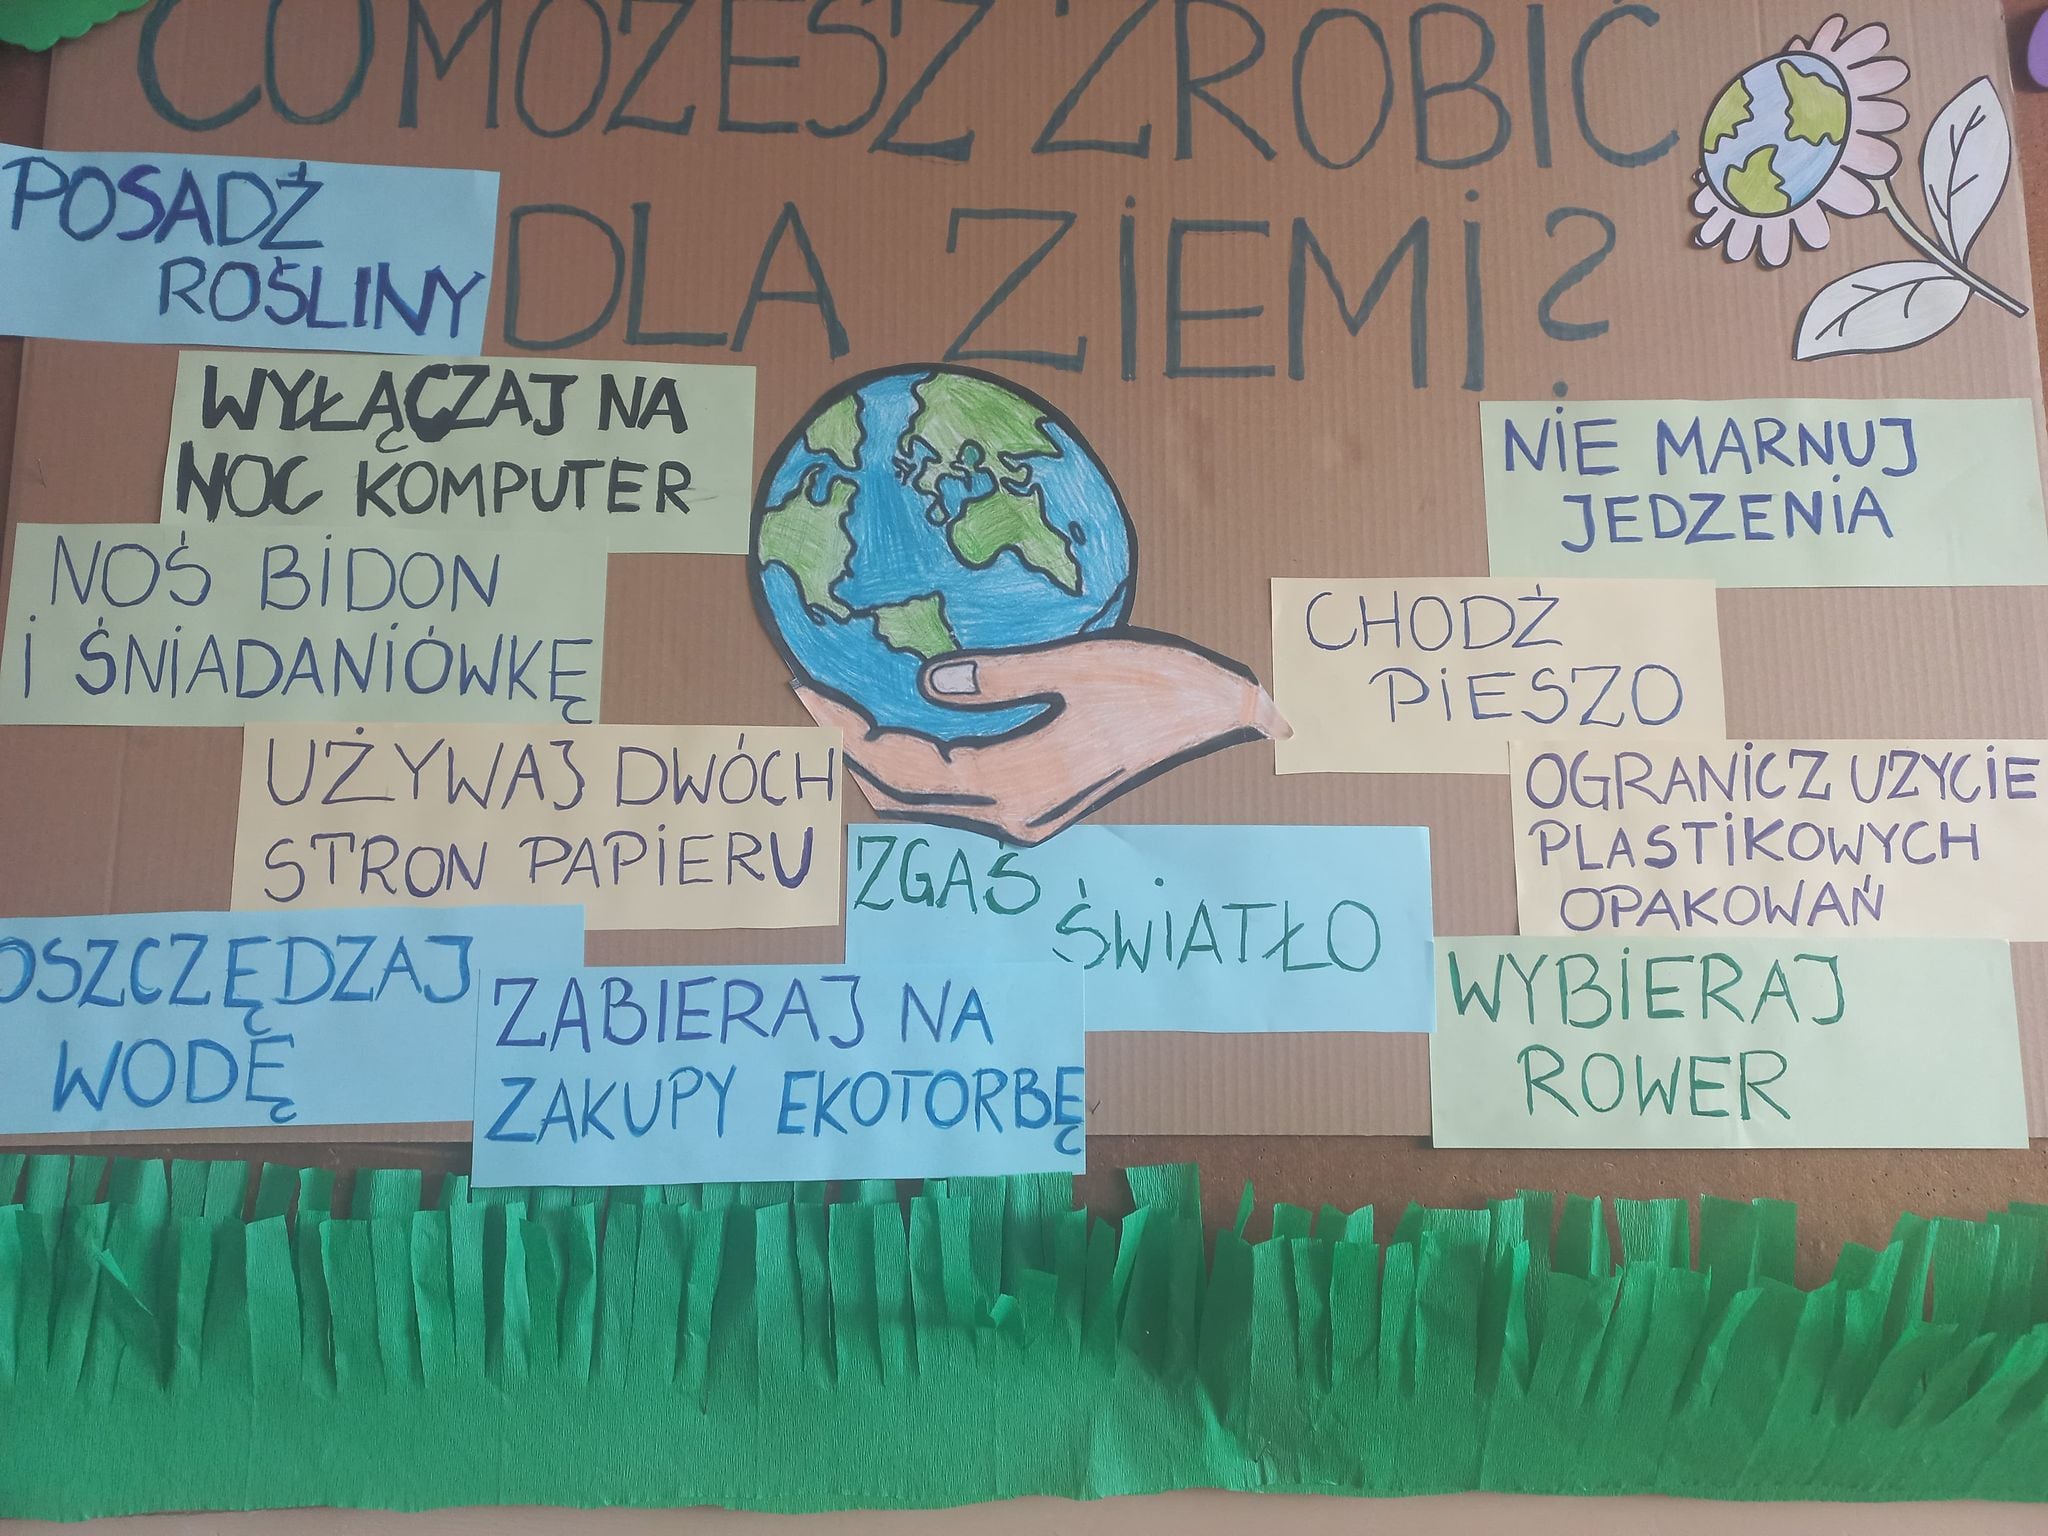 CO MOŻESZ ZROBIĆ
DLA ZIEMI?
POSADŹ
ROŚLINY
WYŁĄCZAJ NA
NOC KOMPUTER
NOŚ BIDON
I ŚNIADANIÓWKĘ
UŻYWAJ DWÓCH
STRON PAPIERU
OSZCZĘDZAJ
WODĘ
ZABIERAJ NA
ZAKUPY EKOTORBĘ
ZGAŚ
ŚWIATŁO
NIE MARNUJ
JEDZENIA
CHODŹ
PIESZO
OGRANICZ UZYCIE
PLASTIKOWYCH
OPAKOWAŃ
WYBIERAJ
ROWER